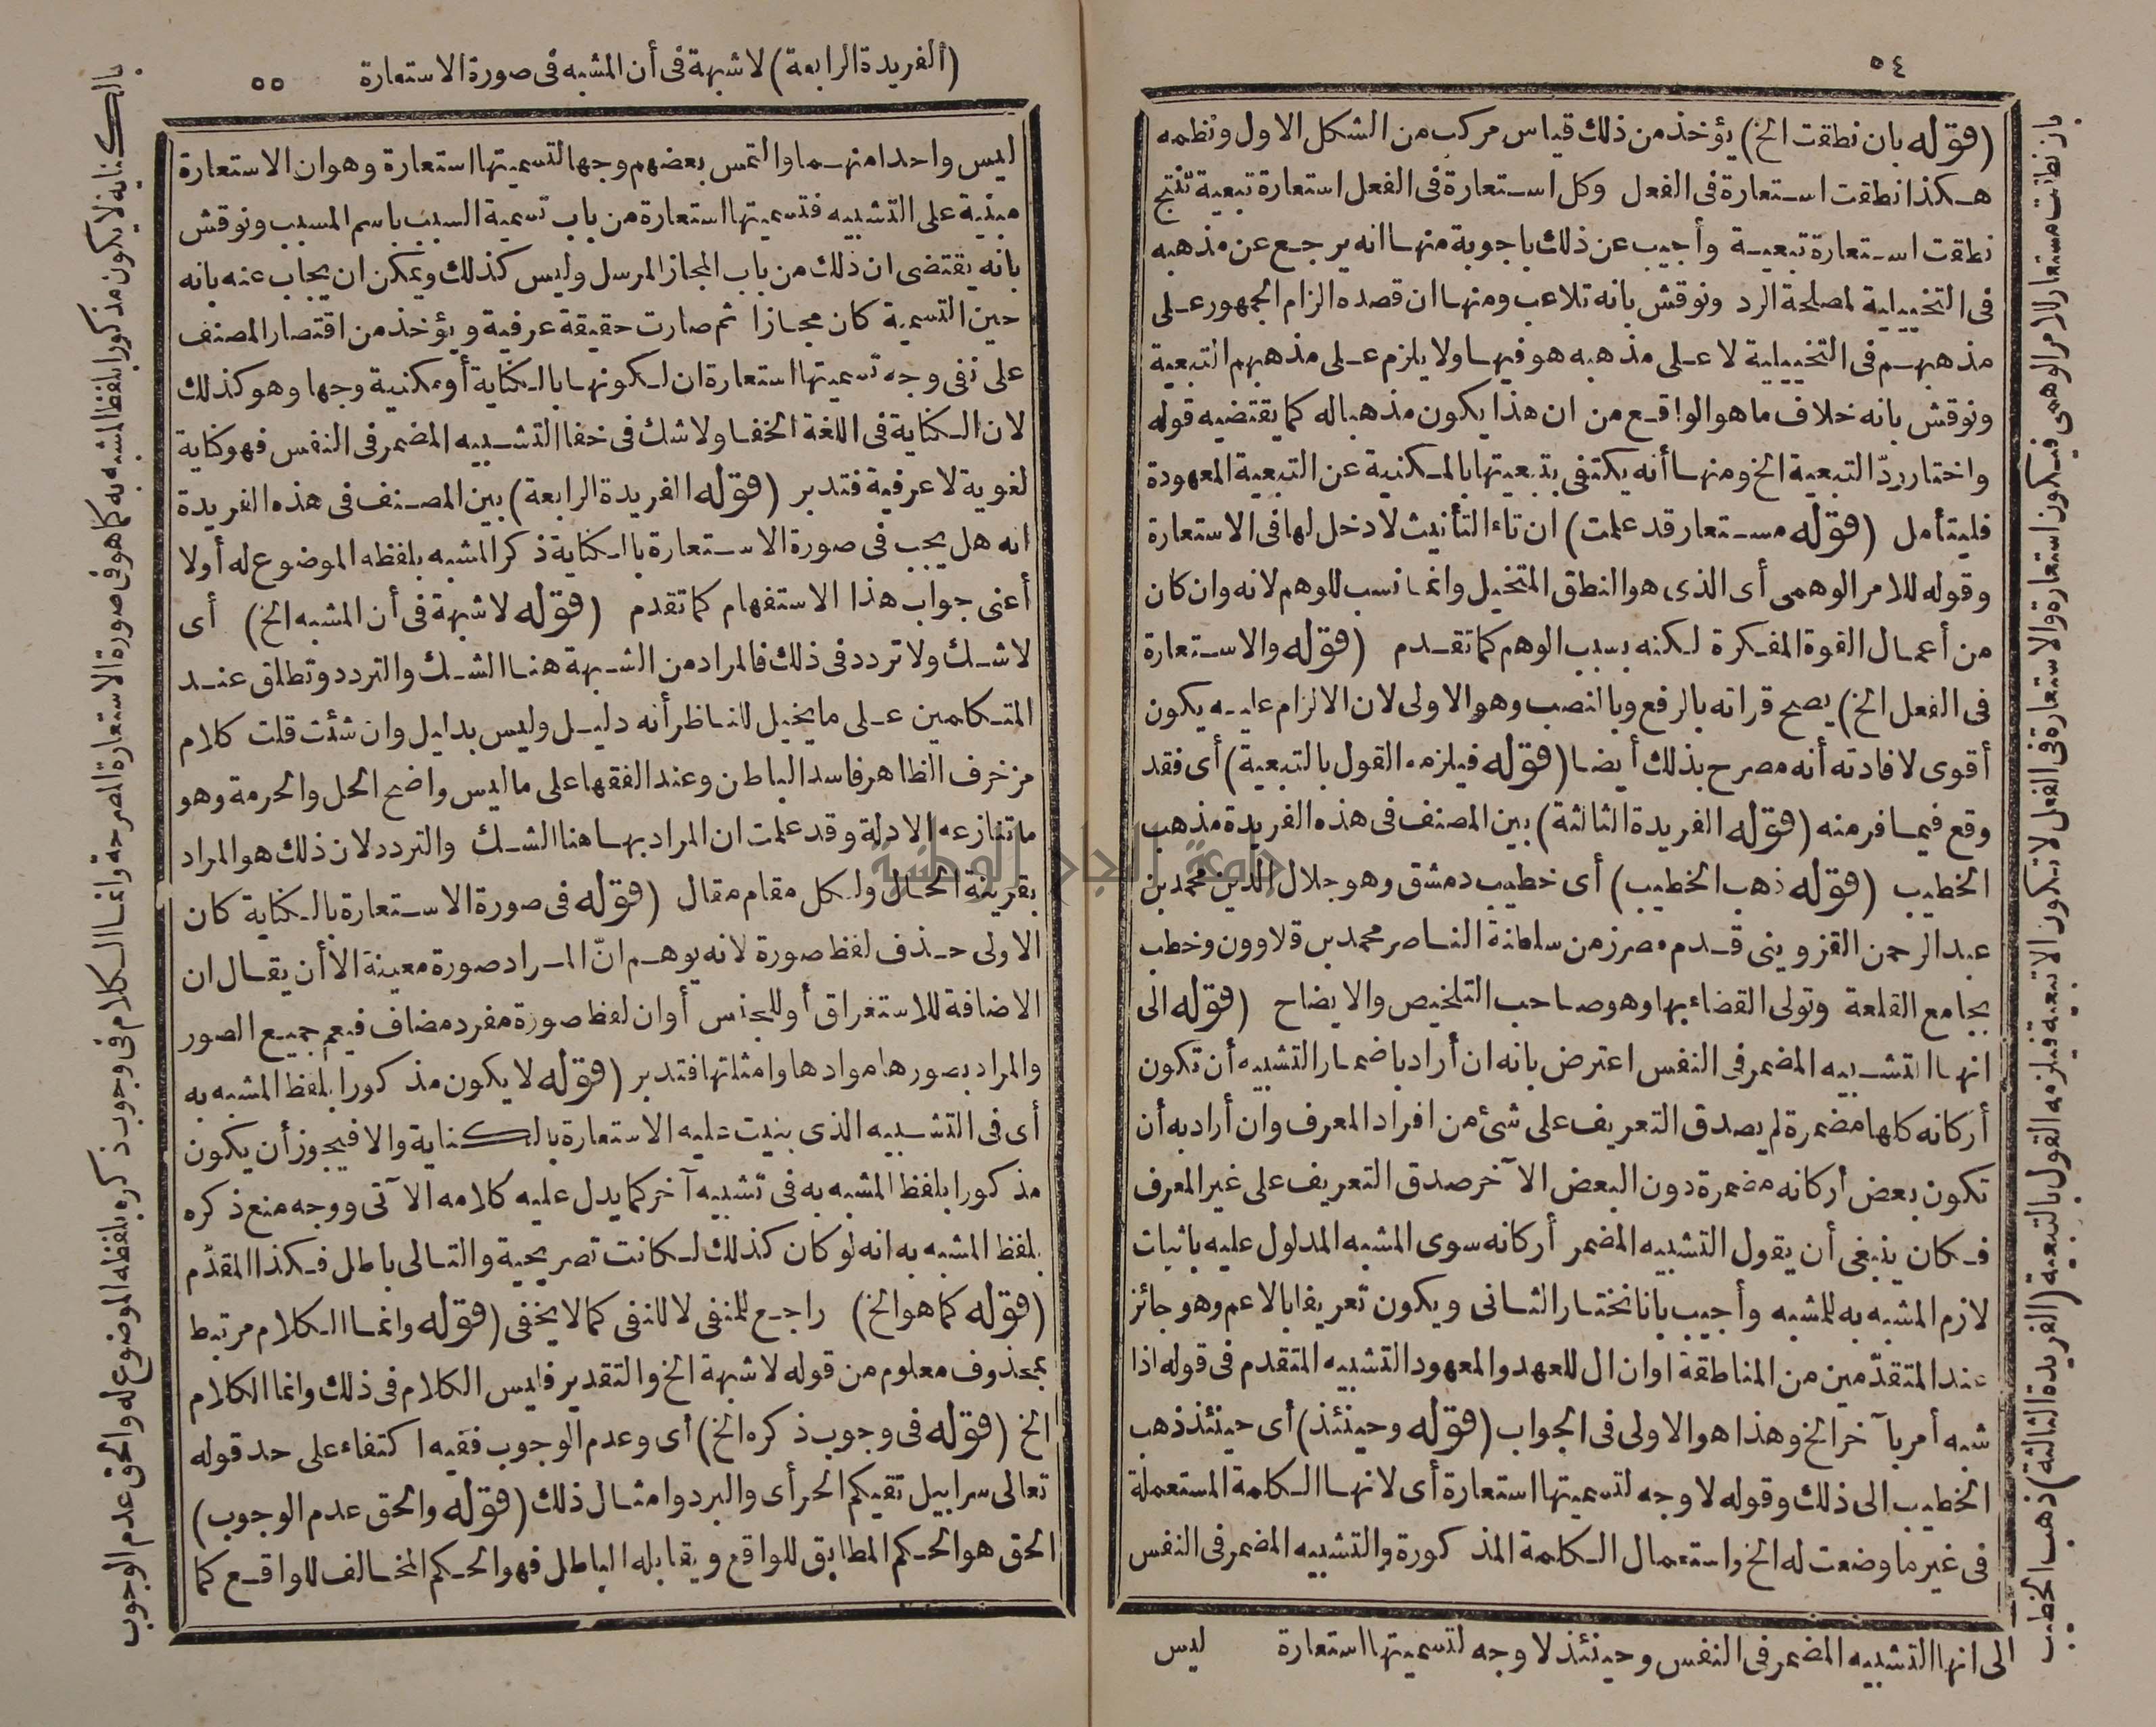 ٥٤
(قوله بان نطقت الخ) يؤخذ من ذلك قياس مركب من الشكل الاول ونظمه
هكذا نطقت استعارة فى الفعل وكل استعارة فى الفعل استعارة تبعية تنتج
نطقت استعارة تبعية وأجيب عن ذلك باجوبة منها انه يرجع عن مذهبه
فى التخييلية لمصلحة الرد ونوقش بانه تلاعب ومنها ان قصده الزام الجمهور على
مذهبهم فى التخييلية لا على مذهبه هو فيها ولا يلزم على مذهبهم التبعية
ونوقش بانه خلاف ما هو الواقع من ان هذا يكون مذهبا له كما يقتضيه قوله
واختار ردّ التبعية الخ ومنها أنه يكتفى بتبعيتها بالمكنية عن التبعية المعهودة
فليتأمل (قوله مستعار قد علمت) ان تاء التأنيث لا دخل لها فى الاستعارة
وقوله للامر الوهمى أى الذى هو النطق المتخيل وانما نسب للوهم لانه وان كان
من أعمال القوة المفكرة لكنه بسبب الوهم كما تقدم (قوله والاستعارة
فى الفعل الخ) يصح قراته بالرفع وبالنصب وهو الاولى لان الالزام عليه يكون
أقوى لافادته أنه مصرح بذلك أيضا (قوله فيلزمه القول بالتبعية) أى فقد
وقع فيما فر منه (قوله الفريدة الثالثة) بين المصنف فى هذه الفريدة مذهب
الخطيب (قوله ذهب الخطيب) أى خطيب دمشق وهو جلال الدين محمد بن
عبد الرحمن القزوينى قدم مصر زمن سلطنة الناصر محمد بن قلاوون وخطب
بجامع القلعة وتولى القضاء بها وهو صاحب التلخيص والايضاح (قوله الى
انها التشبيه المضمر فى النفس اعترض بانه ان أراد باضمار التشبيه أن تكون
أركانه كلها مضمرة لم يصدق التعريف على شئ من افراد المعرف وان أراد به أن
تكون بعض أركانه مضمرة دون البعض الآخر صدق التعريف على غير المعرف
فكان ينبغى أن يقول التشبيه المضمر أركانه سوى المشبه المدلول عليه باثبات
لازم المشبه به للمشبه وأجيب بانا نختار الثانى ويكون تعريفا بالاعم وهو جائز
عند المتقدّمين من المناطقة اوان ال للعهد والمعهود التشبيه المتقدم فى قوله اذا
شبه أمر بآخر الخ وهذا هو الاولى فى الجواب (قوله وحينئذ) أى حينئذ ذهب
الخطيب الى ذلك وقوله لا وجه لتسميتها استعارة أى لانها الكلمة المستعملة
فى غير ما وضعت له الخ واستعمال الكلمة المذكورة والتشبيه المضمر فى النفس
ليس
بان نطقت مستعار للامر الوهمى فيكون استعارة والاستعارة فى الفعل لا تكون الا تبعية فيلزمه القول بالتبعية (الفريدة الثالثة) ذهب الخطيب
الى انها التشبيه المضمر فى النفس وحينئذ لا وجه لتسميتها استعارة
(الفريدة الرابعة) لا شبهة فى أن المشبه فى صورة الاستعارة
٥٥
ليس واحدا منهما والتمس بعضهم وجها لتسميتها استعارة وهو ان الاستعارة
مبنية على التشبيه فتسميتها استعارة من باب تسمية السبب باسم المسبب ونوقش
بانه يقتضى ان ذلك من باب المجاز المرسل وليس كذلك ويمكن ان يجاب عنه بانه
حين التسمية كان مجازا ثم صارت حقيقة عرفية ويؤخذ من اقتصار المصنف
على نفى وجه تسميتها استعارة ان لكونها بالكناية أو مكنية وجها وهو كذلك
لان الكناية فى اللغة الخفا ولا شك فى خفا التشبيه المضمر فى النفس فهو كناية
لغوية لا عرفية فتدبر (قوله الفريدة الرابعة) بين المصنف فى هذه الفريدة
انه هل يجب فى صورة الاستعارة بالكناية ذكر المشبه بلفظه الموضوع له أولا
أعنى جواب هذا الاستفهام كما تقدم (قوله لا شبهة فى أن المشبه الخ) أى
لا شك ولا تردد فى ذلك فالمراد من الشبهة هنا الشك والتردد وتطلق عند
المتكلمين على ما يخيل للناظر أنه دليل وليس بدليل وان شئت قلت كلام
مزخرف الظاهر فاسد الباطن وعند الفقها على ما ليس واضح الحل والحرمة وهو
ما تنازعه الادلة وقد علمت ان المراد بها هنا الشك والتردد لان ذلك هو المراد
بقرينة الحال ولكل مقام مقال (قوله فى صورة الاستعارة بالكناية كان
الاولى حذف لفظ صورة لانه يوهم انّ المراد صورة معينة الا أن يقال ان
الاضافة للاستغراق أو للجنس أوان لفظ صورة مفرد مضاف فيعم جميع الصور
والمراد بصورها موادها وامثلتها فتدبر (قوله لا يكون مذكورا بلفظ المشبه به
أى فى التشبيه الذى بنيت عليه الاستعارة بالكناية والا فيجوز أن يكون
مذكورا بلفظ المشبه به فى تشبيه آخر كما يدل عليه كلامه الآتى ووجه منع ذكره
بلفظ المشبه به انه لو كان كذلك لكانت تصريحية والتالى باطل فكذا المقدّم
(قوله كما هو الخ) راجع للمنفى لا للنفى كما لا يخفى (قوله وانما الكلام مرتبط
بمحذوف معلوم من قوله لا شبهة الخ والتقدير فليس الكلام فى ذلك وانما الكلام
الخ (قوله فى وجوب ذكره الخ) أى وعدم الوجوب ففيه اكتفاء على حد قوله
تعالى سرابيل تقيكم الحر أى والبرد وامثال ذلك (قوله والحق عدم الوجوب)
الحق هو الحكم المطابق للواقع ويقابله الباطل فهو الحكم المخالف للواقع كما
بالكناية لا يكون مذكورا بلفظ المشبه به كما هو فى صورة الاستعارة المصرحة وانما الكلام فى وجوب ذكره بلفظه الموضوع له والحق عدم الوجوب
جامعة النجاح الوطنية